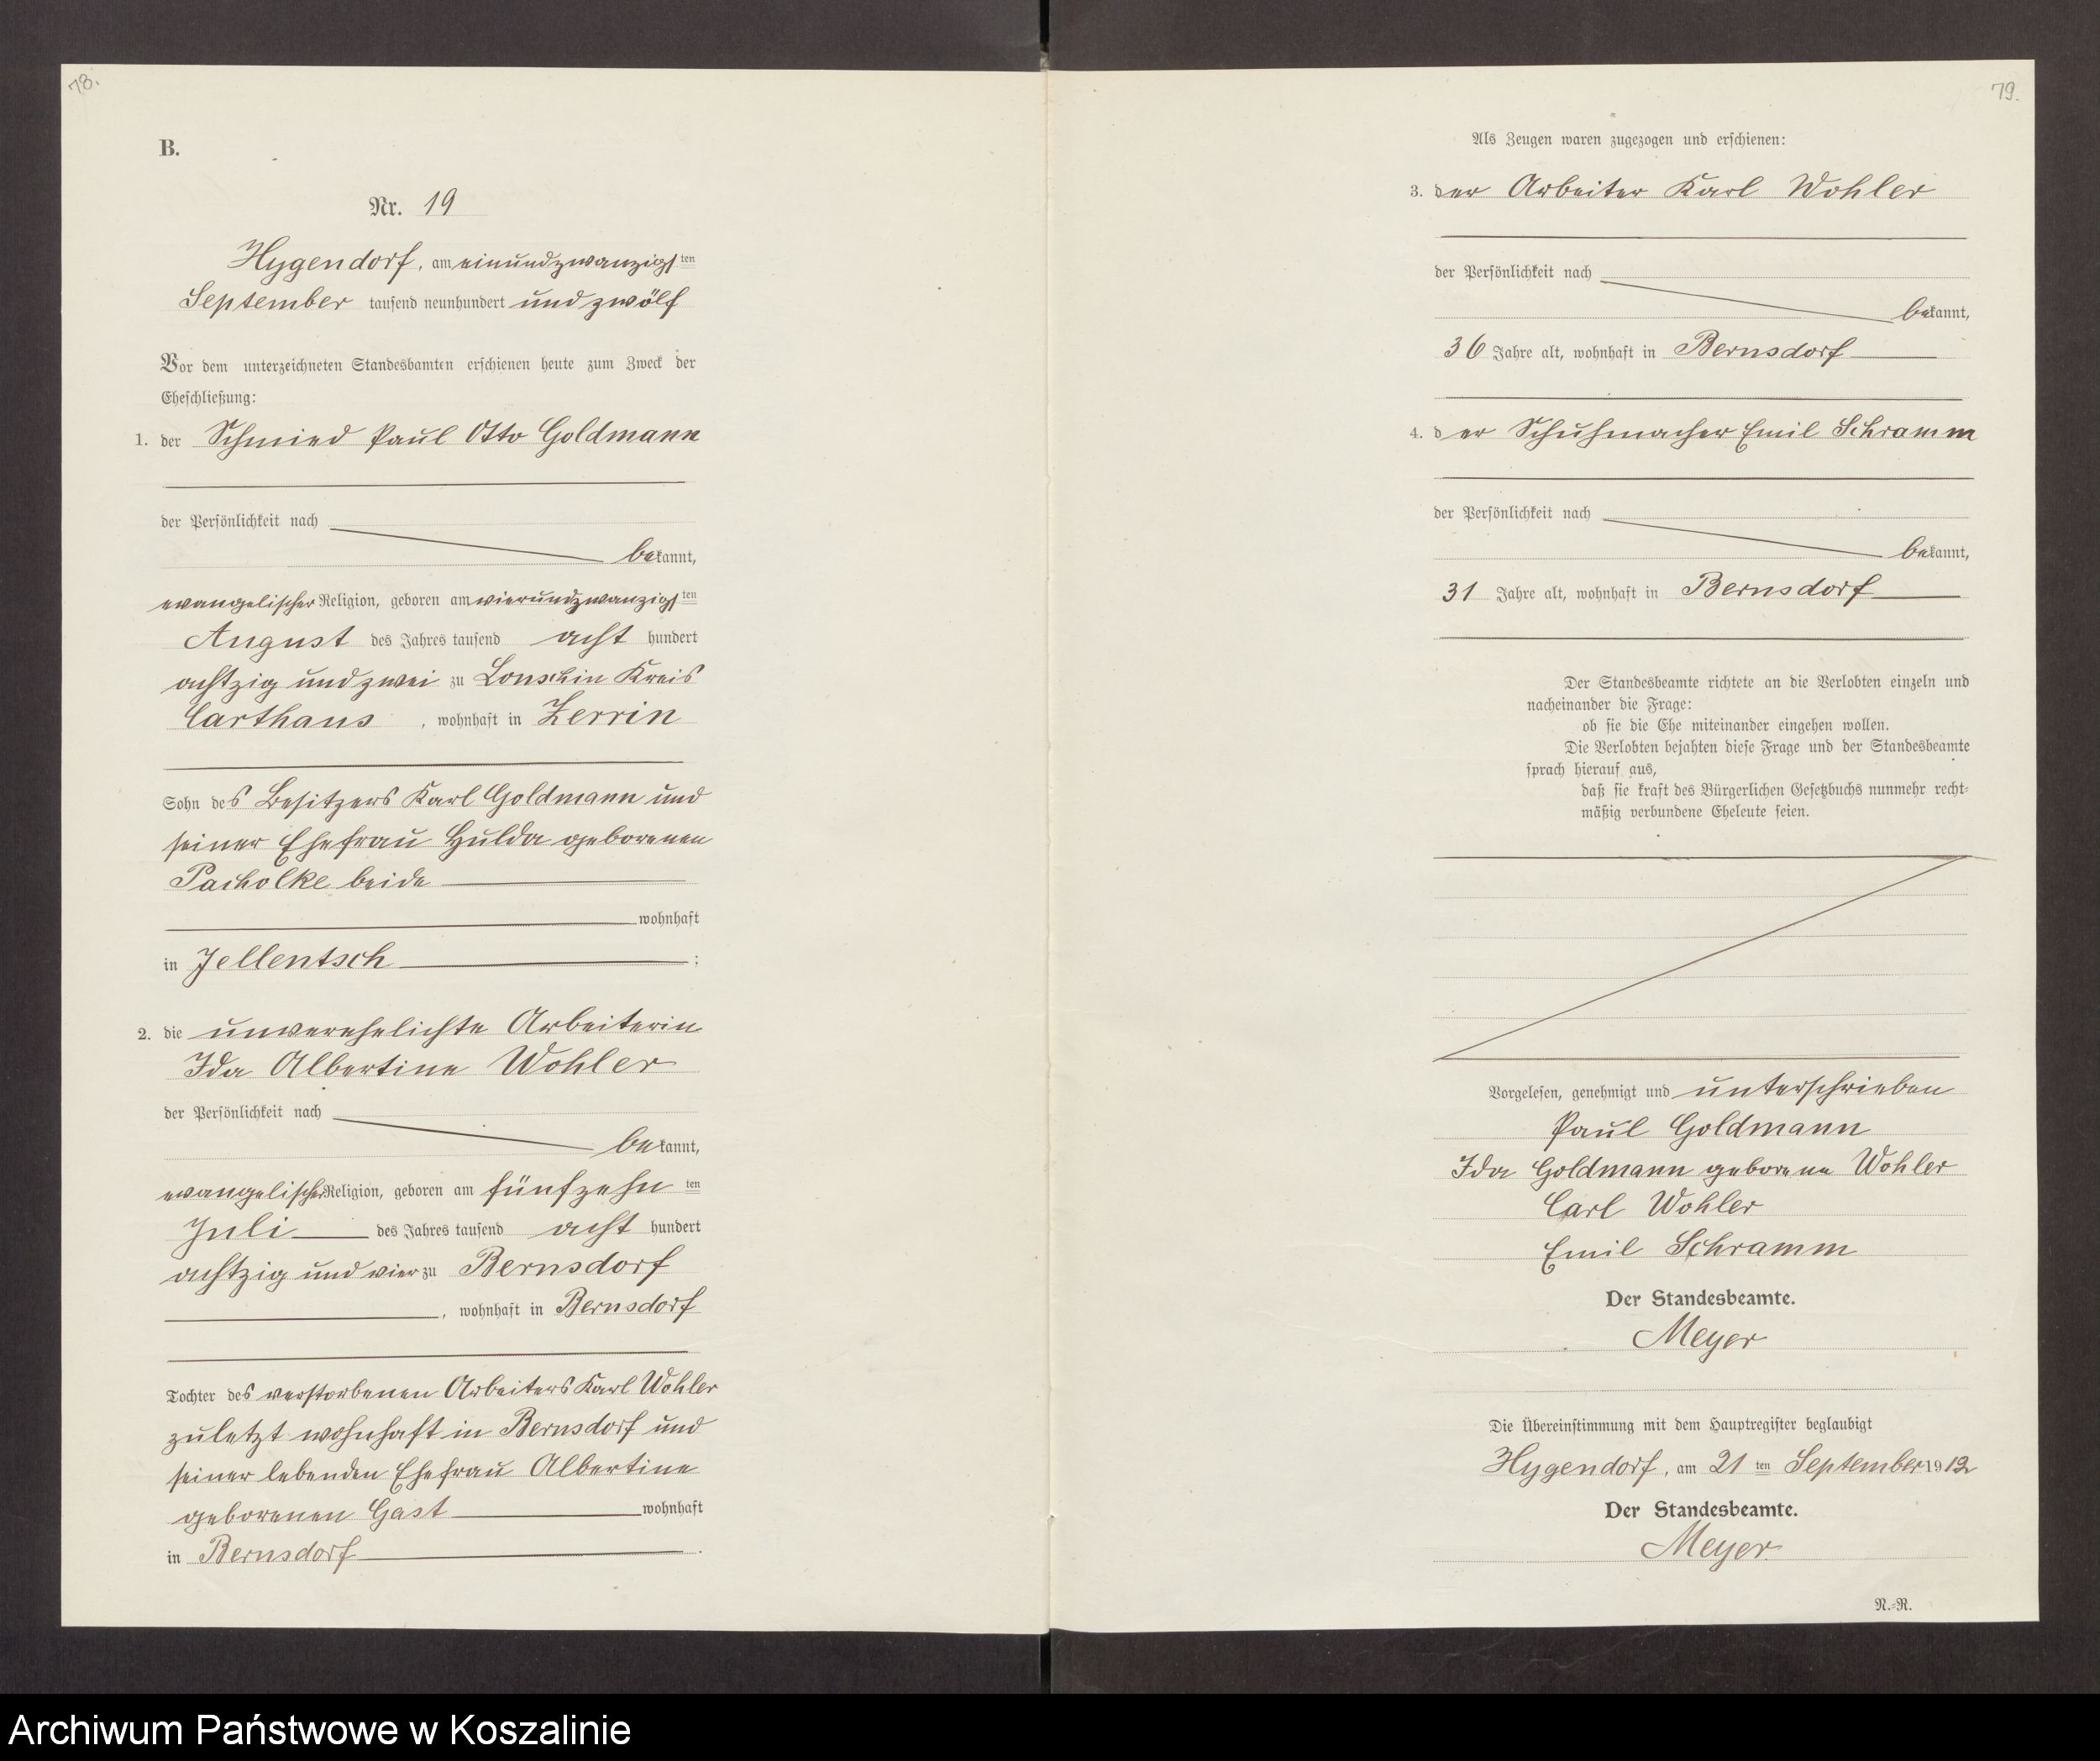 78.
B.
Nr. 19
Hygendorf, am einundzwanzigsten
September tausend neunhundert und zwölf
Vor dem unterzeichneten Standesbamten erschienen heute zum Zweck der
Eheschließung:
1. der Schmied Paul Otto Goldmann
der Persönlichkeit nach
bekannt,
evangelischer Religion, geboren am vierundzwanzigsten
August des Jahres tausend acht hundert
achtzig und zwei zu Lonschin Kreis
Carthaus, wohnhaft in Zerrin
Sohn des Besitzers Karl Goldmann und
seiner Ehefrau Hulda geborenen
Pacholke beide
wohnhaft
in Jellentsch;
2. die unverehelichte Arbeiterin
Ida Albertine Wohler
der Persönlichkeit nach
bekannt,
evangelischer Religion, geboren am fünfzehnten
Juli des Jahres tausend acht hundert
achtzig und vier zu Bernsdorf
, wohnhaft in Bernsdorf
Tochter des verstorbenen Arbeiters Karl Wohler
zuletzt wohnhaft in Bernsdorf und
seiner lebenden Ehefrau Albertine
geborenen Gast wohnhaft
in Bernsdorf.
79.
Als Zeugen waren zugezogen und erschienen:
3. der Arbeiter Karl Wohler
der Persönlichkeit nach
bekannt,
36 Jahre alt, wohnhaft in Bernsdorf
4. der Schuhmacher Emil Schramm
der Persönlichkeit nach
bekannt,
31 Jahre alt, wohnhaft in Bernsdorf
Der Standesbeamte richtete an die Verlobten einzeln und
nacheinander die Frage:
ob sie die Ehe miteinander eingehen wollen.
Die Verlobten bejahten diese Frage und der Standesbeamte
sprach hierauf aus,
daß sie kraft des Bürgerlichen Gesetzbuchs nunmehr recht-
mäßig verbundene Eheleute seien.
Vorgelesen, genehmigt und unterschrieben
Paul Goldmann
Ida Goldmann geborene Wohler
Carl Wohler
Emil Schramm
Der Standesbeamte.
Meyer
Die Übereinstimmung mit dem Hauptregister beglaubigt
Hygendorf, am 21 ten September 1912
Der Standesbeamte.
Meyer.
N.-R.
Archiwum Państwowe w Koszalinie